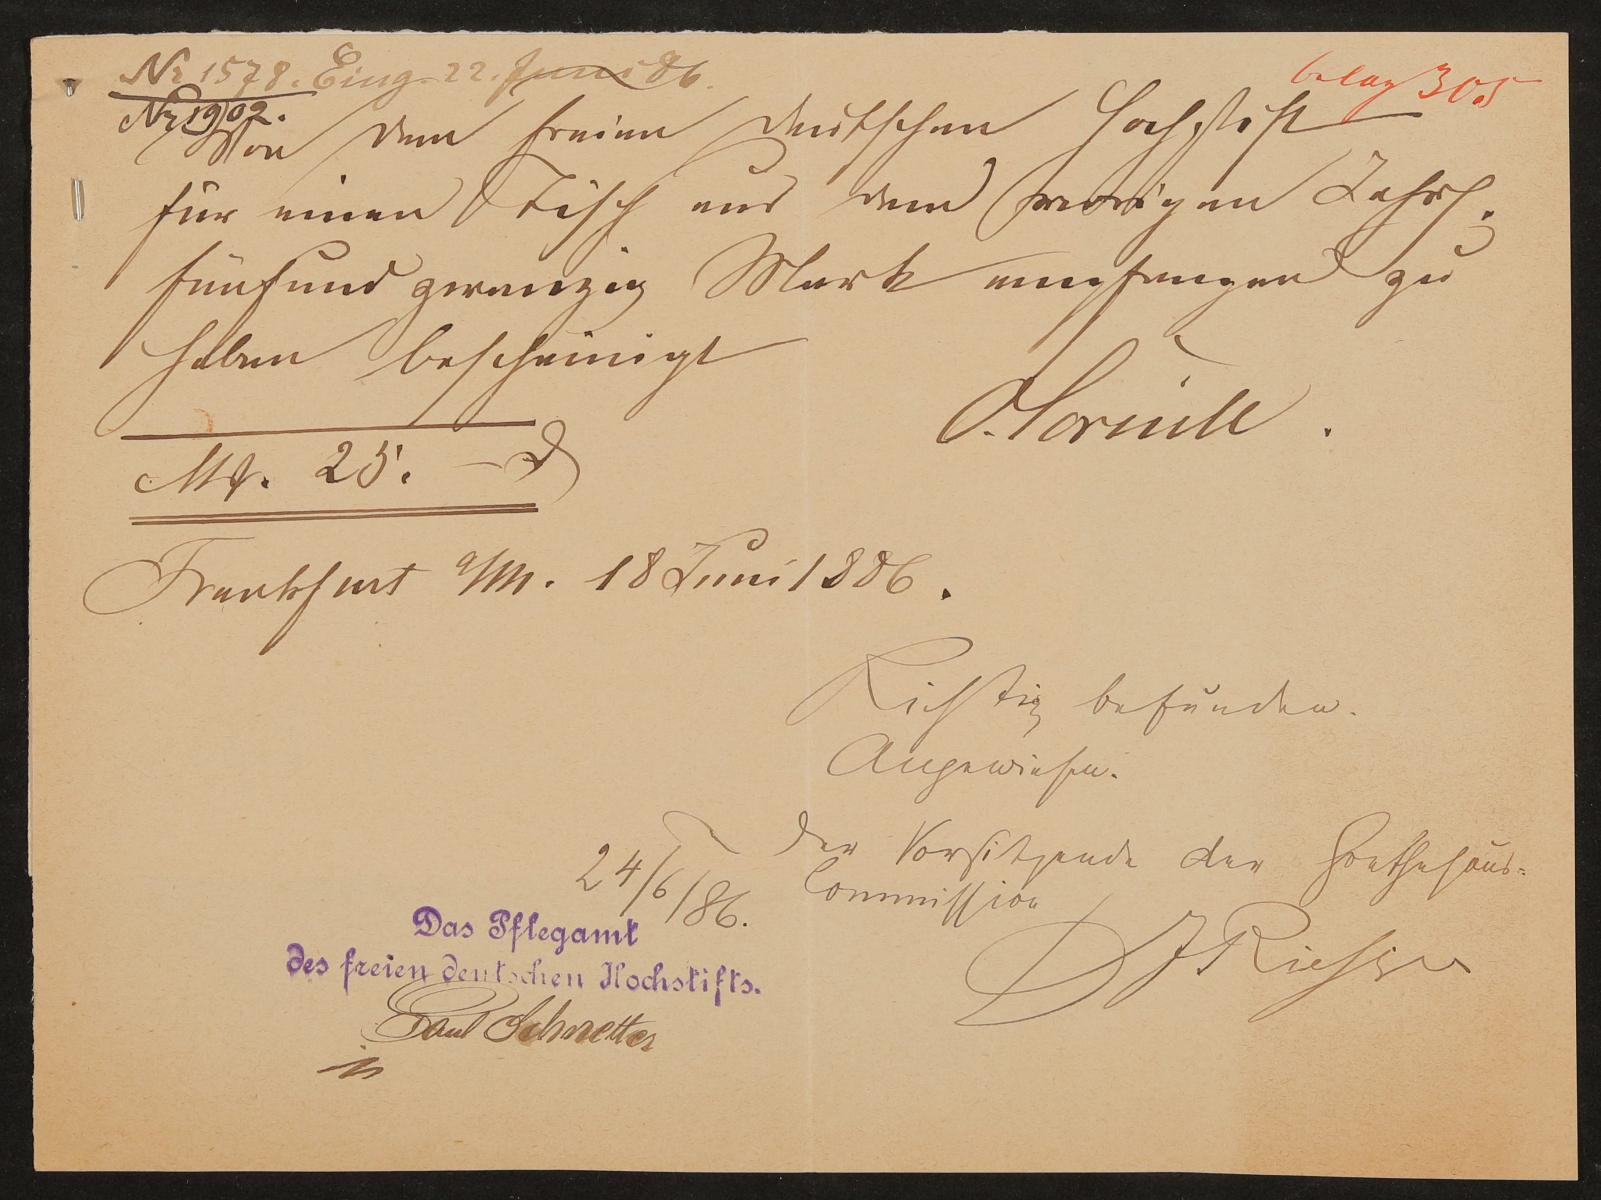 Nr 1578. Eing. 22. Juni 86.
Belag 305
Nr 1902.
Von dem freien deutschen Hochstift
für einen Tisch aus dem vorigen Jahrh.
fünfundzwanzig Mark empfangen zu
haben bescheinigt
O. Cornill.
Mk. 25. —
Frankfurt a/M. 18 Juni 1886.
Richtig befunden.
Angewiesen.
Der Vorsitzende der Goethehaus-
Commission
24/6/86.
Das Pflegamt
des freien deutschen Hochstifts.
Dr J Rießer
Paul Schnetter